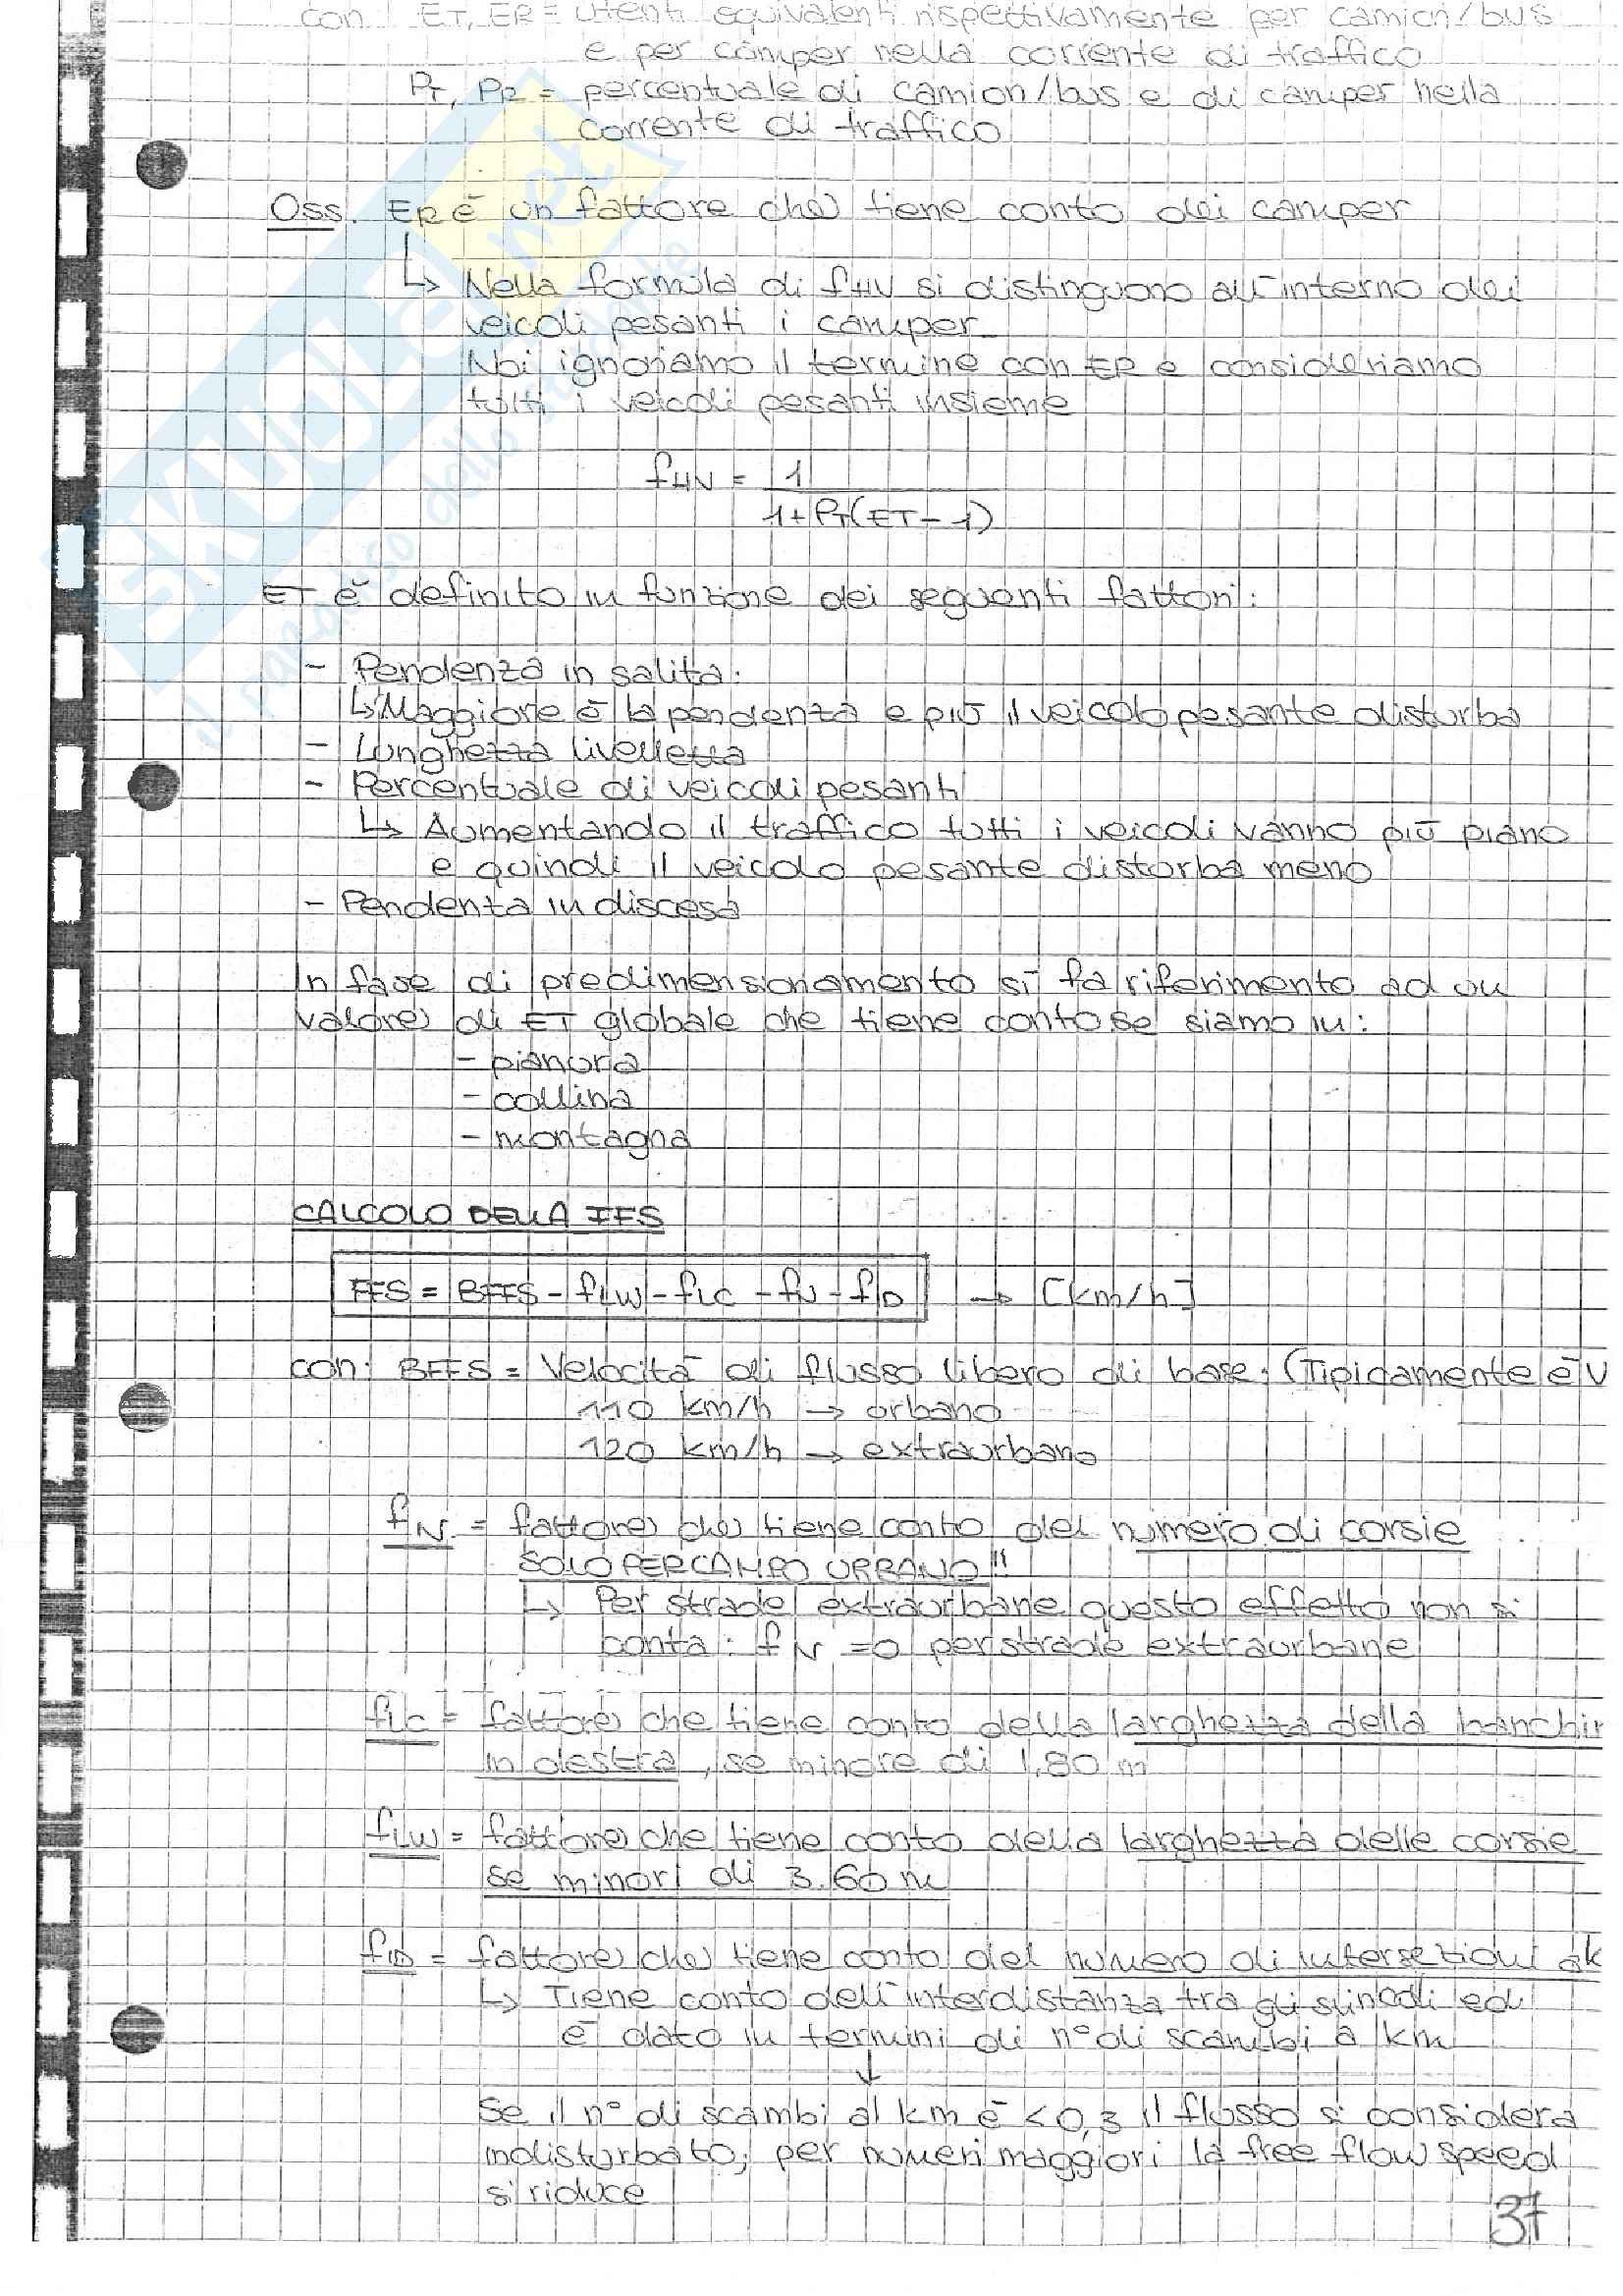 con ET, ER = utenti equivalenti rispettivamente per camion/bus
e per camper nella corrente di traffico
PT, PR = percentuale di camion/bus e di camper nella
corrente di traffico
Oss. ER è un fattore che tiene conto dei camper
↳ Nella formula di fHV si distinguono all'interno dei
veicoli pesanti i camper
Noi ignoriamo il termine con ER e consideriamo
tutti i veicoli pesanti insieme
fHV = 1
1+PT(ET-1)
ET è definito in funzione dei seguenti fattori:
- Pendenza in salita:
↳ Maggiore è la pendenza e più il veicolo pesante disturba
- Lunghezza livelletta
- Percentuale di veicoli pesanti
↳ Aumentando il traffico tutti i veicoli vanno più piano
e quindi il veicolo pesante disturba meno
- Pendenza in discesa
In fase di predimensionamento si fa riferimento ad un
valore di ET globale che tiene conto se siamo in:
- pianura
- collina
- montagna
CALCOLO DELLA FFS
FFS = BFFS - fLW - fLC - fN - fID → [km/h]
con: BFFS = Velocità di flusso libero di base: (Tipicamente è V
110 km/h → urbano
120 km/h → extraurbano
fN = fattore che tiene conto del numero di corsie
SOLO PER CAMPO URBANO!!
↳ Per strade extraurbane questo effetto non si
conta: fN =0 per strade extraurbane
fLC = fattore che tiene conto della larghezza della banchi
in destra, se minore di 1,80 m
fLW = fattore che tiene conto della larghezza delle corsie
se minori di 3.60 m
fID = fattore che tiene conto del numero di intersezioni ak
↳ Tiene conto dell'interdistanza tra gli svincoli ed
è dato in termini di n° di scambi a km
↓
Se il n° di scambi al km è <0,3 il flusso si considera
indisturbato; per numeri maggiori la free flow speed
si riduce
37
SKUOLA.net
il paradiso dello studente